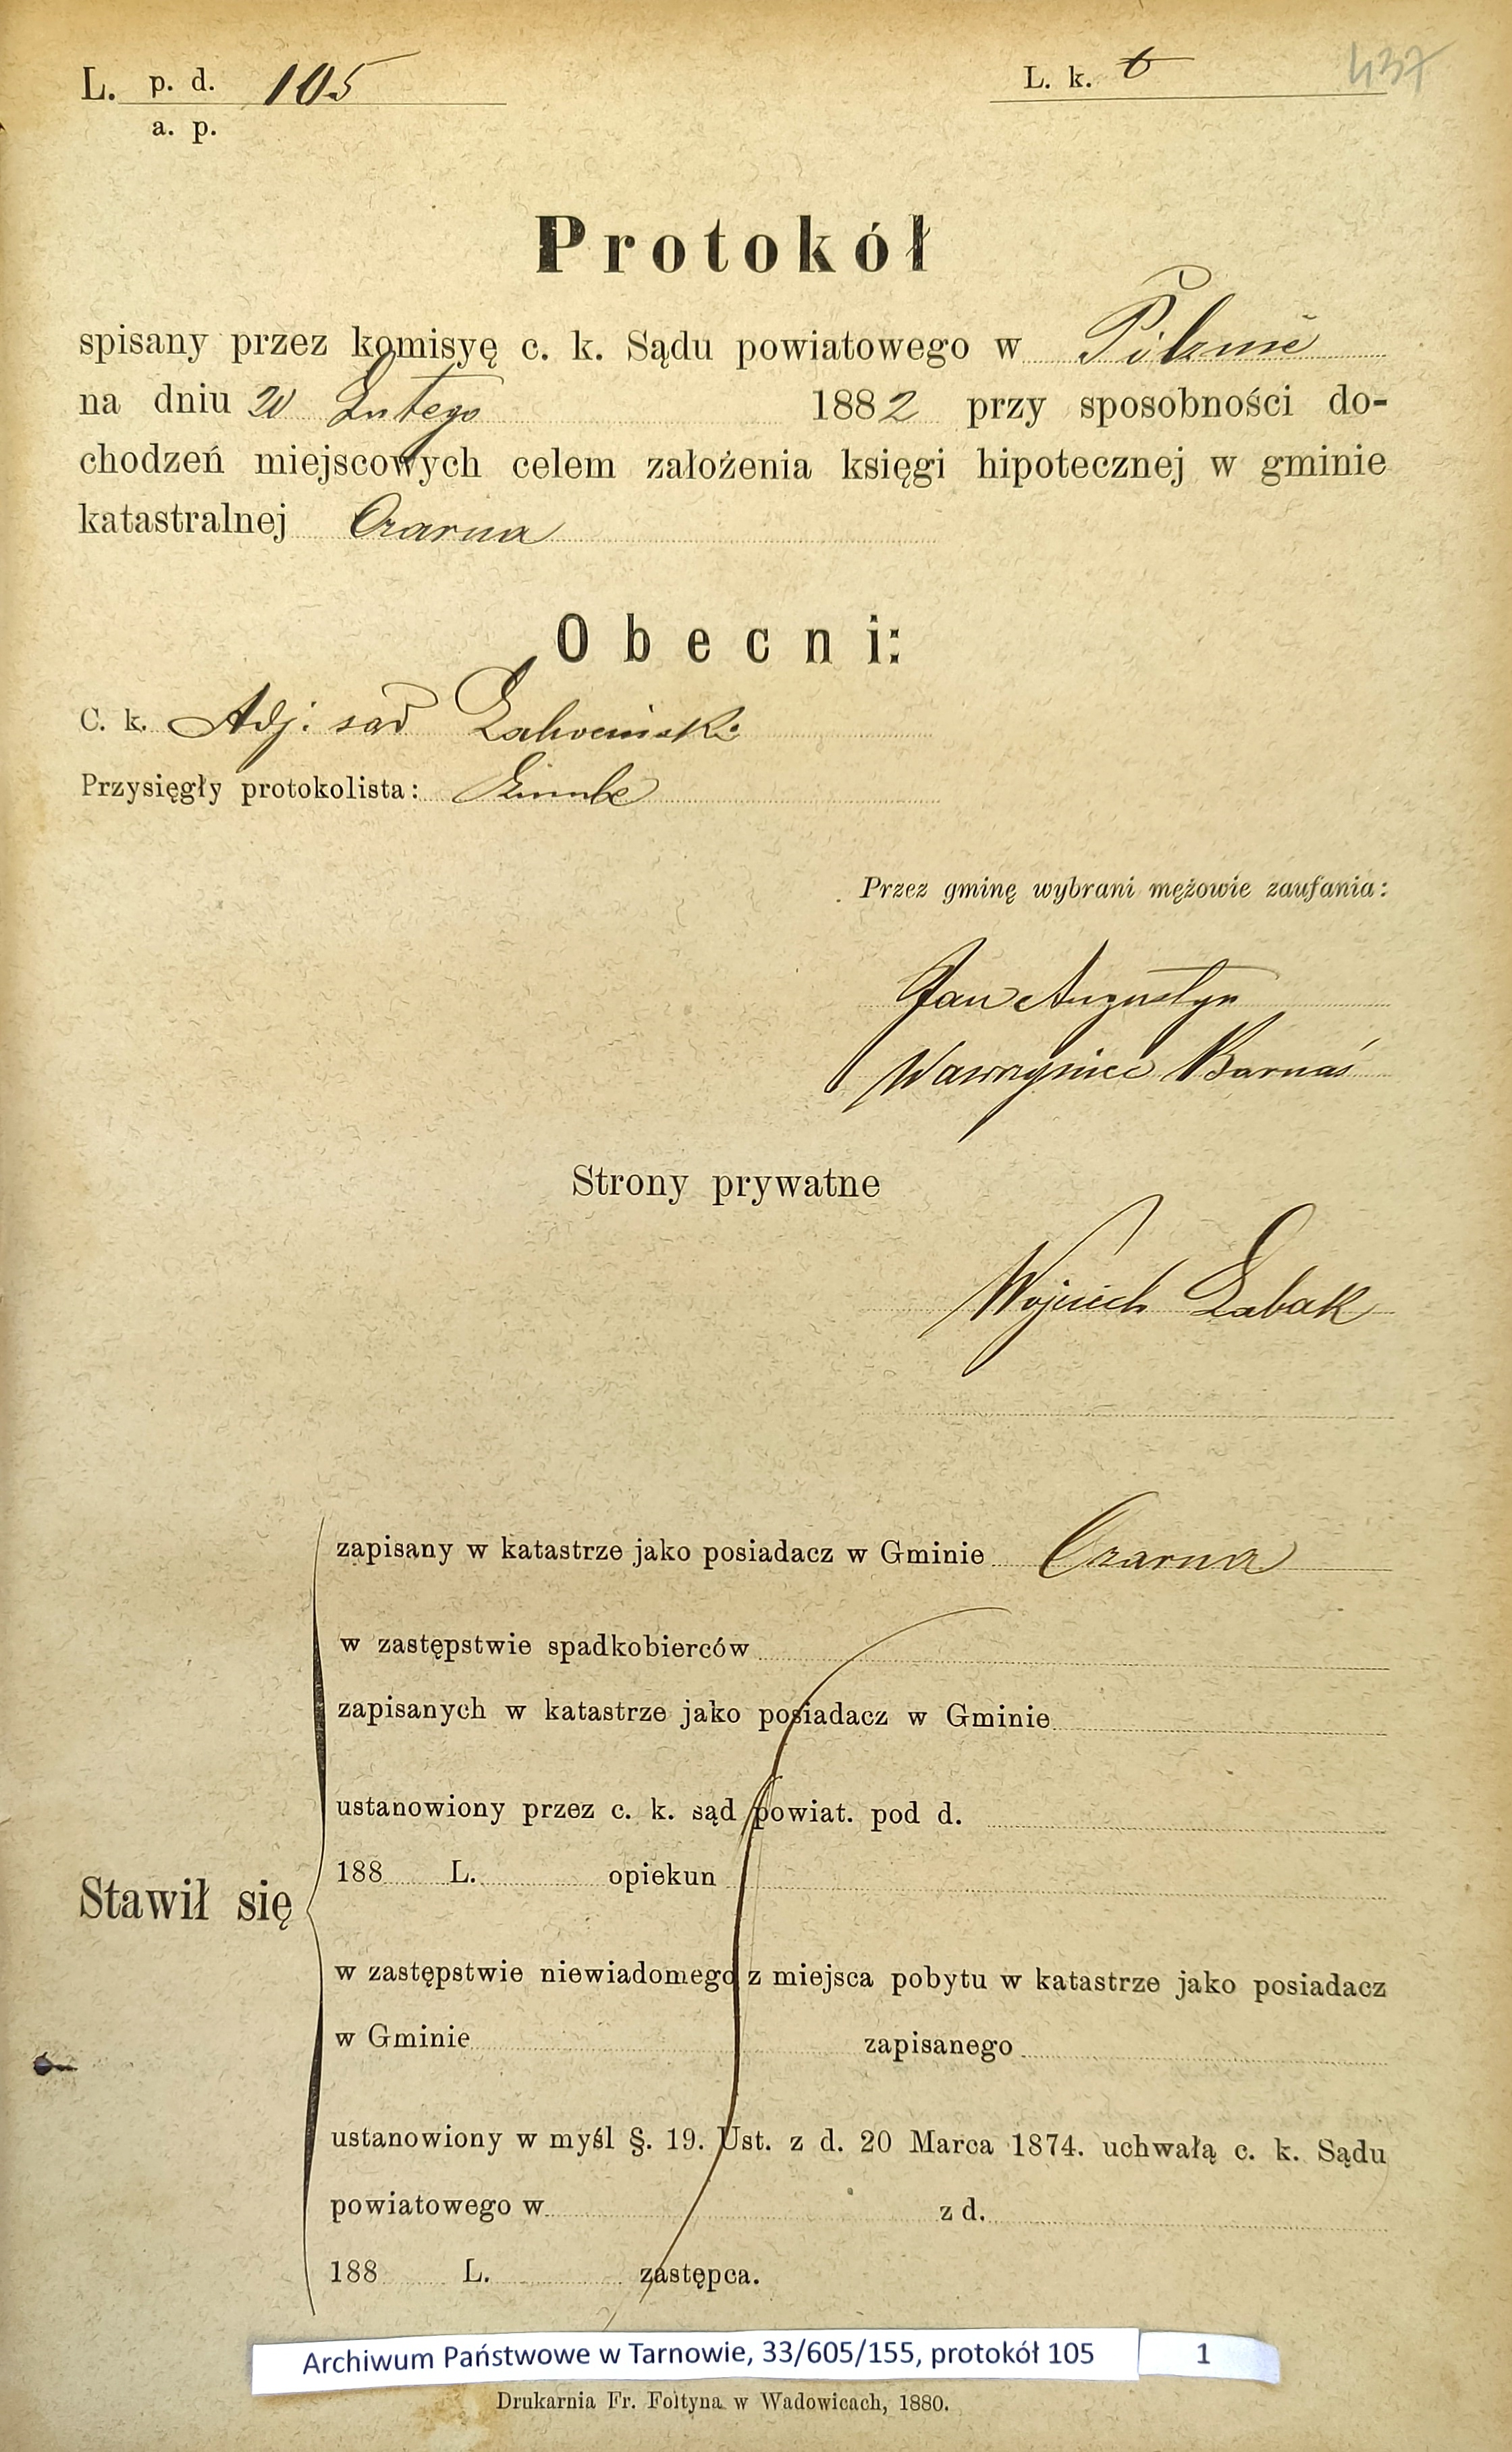 L. p. d. 105
a. p.
L. k. 6
437
Protokół
spisany przez komisyę c. k. Sądu powiatowego w Pilznie
na dniu 20 Lutego 1882 przy sposobności do-
chodzeń miejscowych celem założenia księgi hipotecznej w gminie
katastralnej Czarna
Obecni:
C. k. Adj. sąd
Przysięgły protokolista:
Przez gminę wybrani mężowie zaufania:
Jan Augustyn
Wawrzyniec Barnaś
Strony prywatne
Wojciech Łabak
Stawił się
zapisany w katastrze jako posiadacz w Gminie Czarna
w zastępstwie spadkobierców
zapisanych w katastrze jako posiadacz w Gminie
ustanowiony przez c. k. sąd powiat. pod d.
188 L. opiekun
w zastępstwie niewiadomego z miejsca pobytu w katastrze jako posiadacz
w Gminie zapisanego
ustanowiony w myśl §. 19. Ust. z d. 20 Marca 1874. uchwałą c. k. Sądu
powiatowego w z d.
188 L. zastępca.
Archiwum Państwowe w Tarnowie, 33/605/155, protokół 105 1
Drukarnia Fr. Foltyna w Wadowicach, 1880.